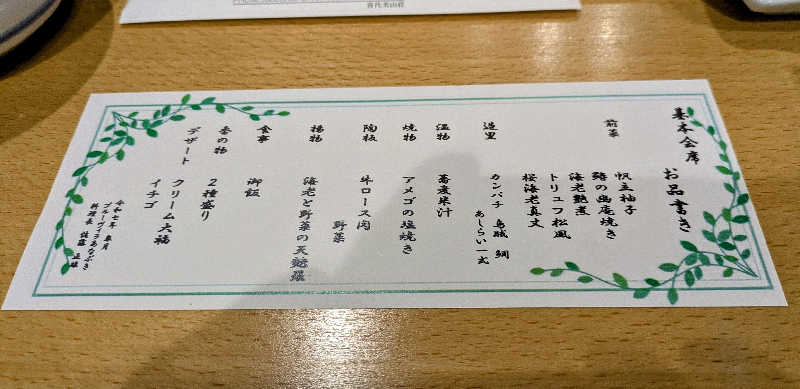 基本会席
お品書き
前菜
帆立柚子
鰆の幽庵焼き
海老艶煮
トリュフ松風
桜海老真丈
造里
カンパチ 烏賊 鯛
あしらい一式
温物
蕎麦米汁
焼物
アメゴの塩焼き
陶板
牛ロース肉
野菜
揚物
海老と野菜の天麩羅
食事
御飯
香の物
2種盛り
デザート
クリーム大福
イチゴ
令和七年 皐月
ブルーヴィラあなぶき
料理長 佐藤